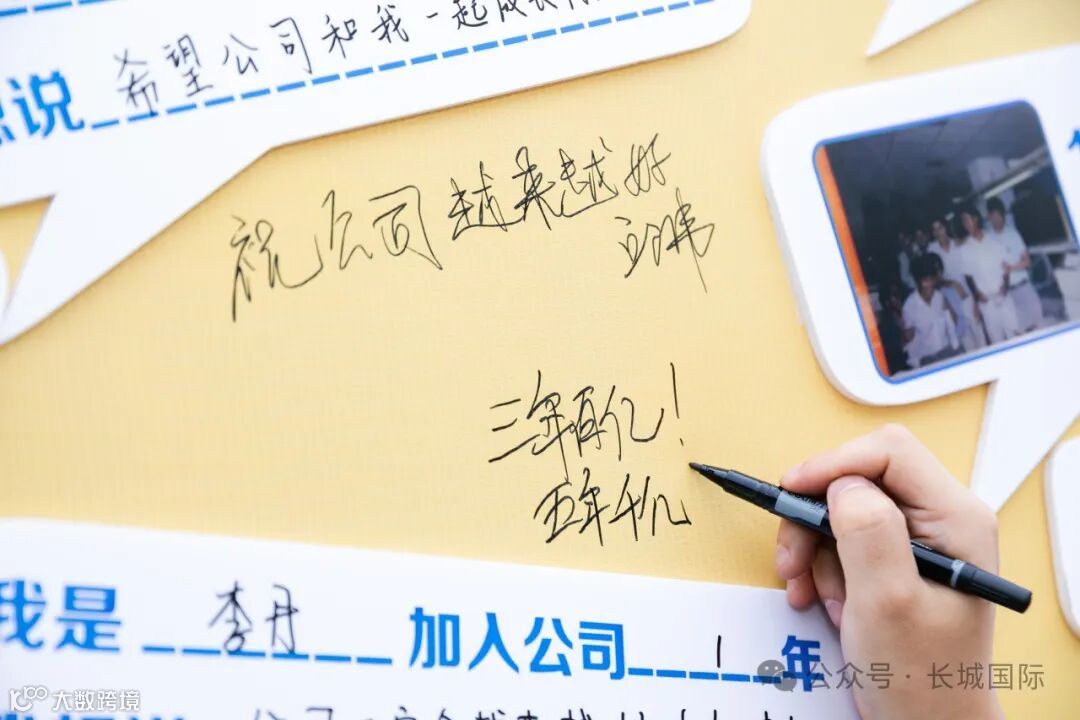 想说 希望公司和我一起成长
祝公司越来越好
三年百亿!
五年千亿
我是 李丹 加入公司 1 年
公众号·长城国际
大数跨境